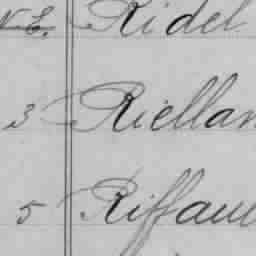 N.E. Ridel
3 Riellan
5 Riffau